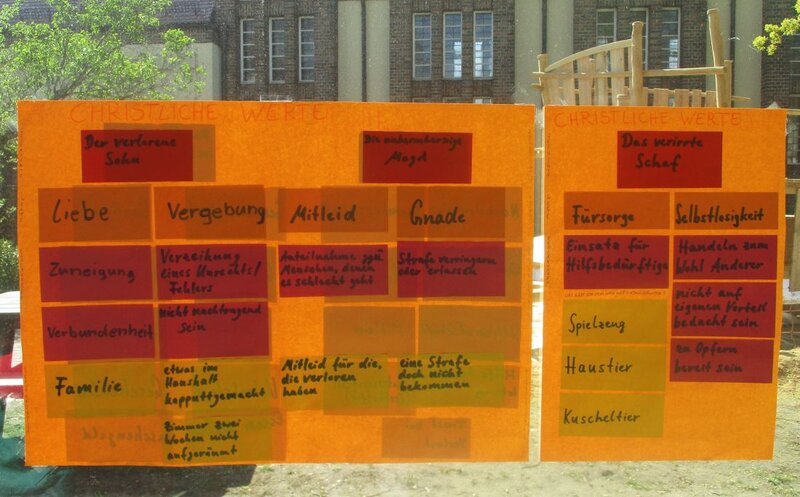 CHRISTLICHE WERTE
Der verlorene
Sohn
Die unbarmherzige
Magd
Liebe
Vergebung
Mitleid
Gnade
Zuneigung
Verzeihung
eines Unrechts/
Fehlers
Anteilnahme ggü
Menschen, denen
es schlecht geht
Strafe verringern
oder erlassen
Verbundenheit
nicht nachtragend
sein
Familie
etwas im
Haushalt
kapputtgemacht
Mitleid für die,
die verloren
haben
eine Strafe
doch nicht
bekommen
Zimmer zwei
Wochen nicht
aufgeräumt
CHRISTLICHE WERTE
Das verirrte
Schaf
Fürsorge
Selbstlosigkeit
Einsatz für
Hilfsbedürftige
Handeln zum
Wohl Anderer
nicht auf
eigenen Vorteil
bedacht sein
Spielzeug
zu Opfern
bereit sein
Haustier
Kuscheltier